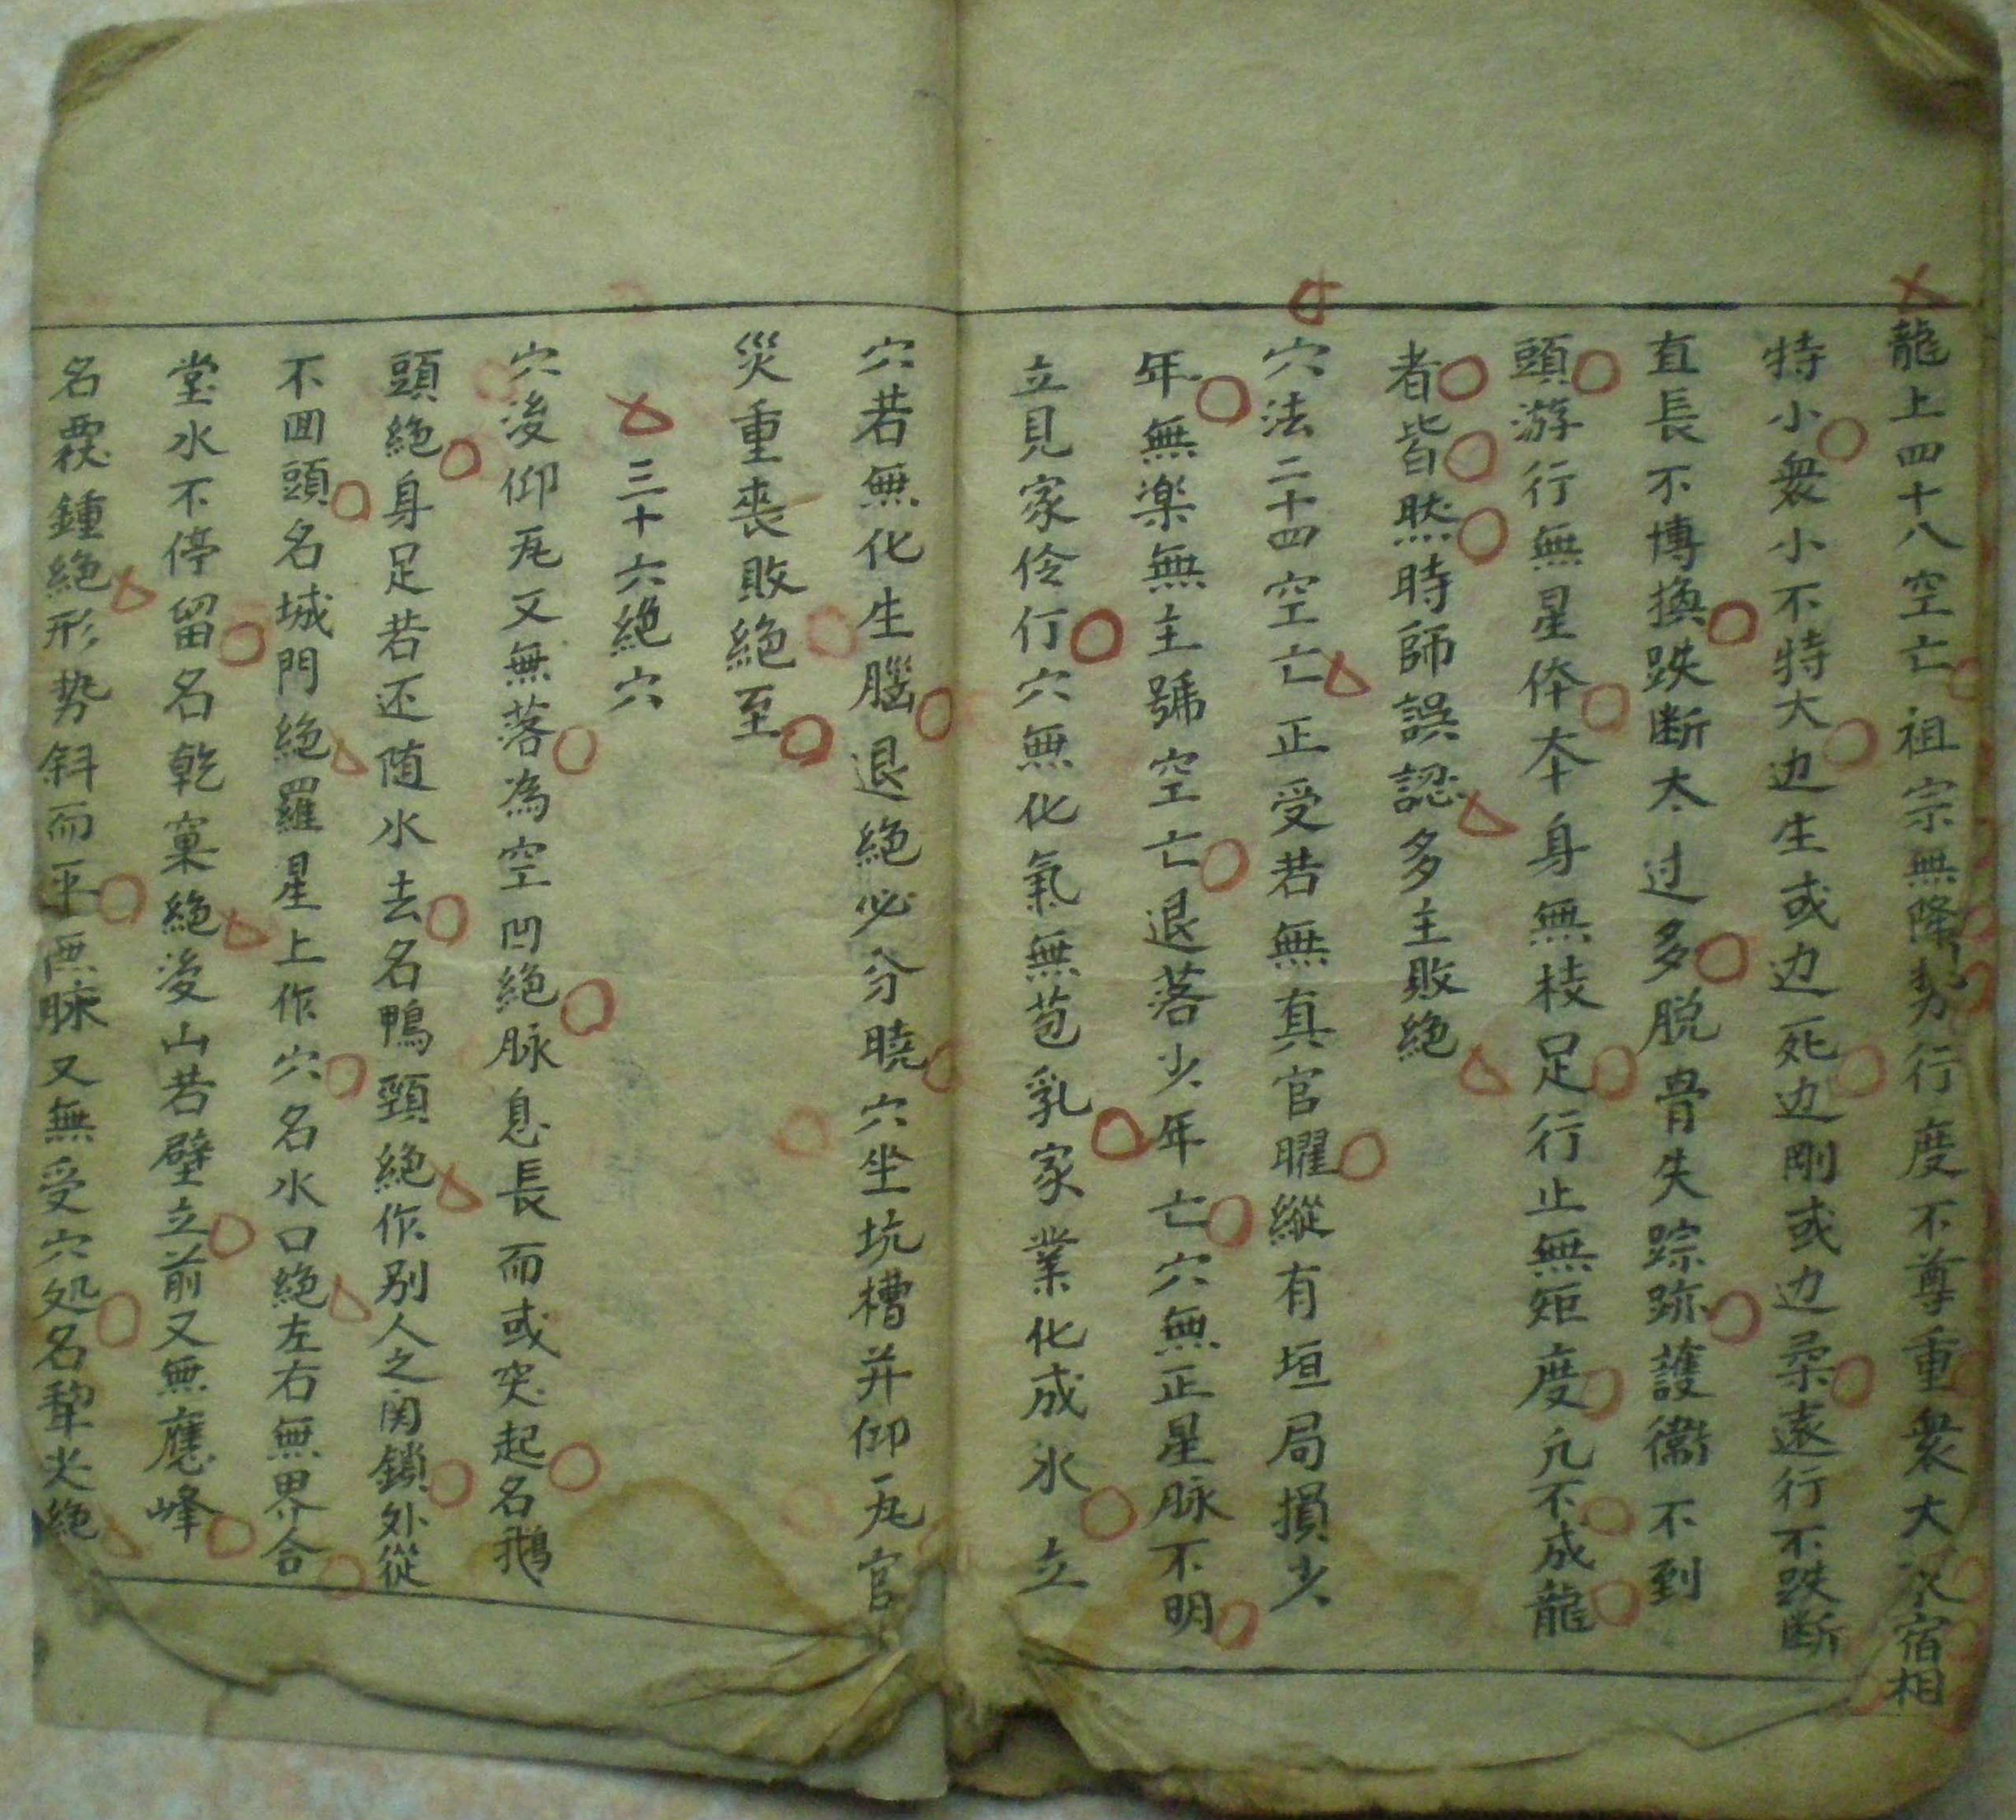 龍上四十八空亡祖宗無降勢行度不尊重衆大宿相
特小衆小不特大边生或边死边剛或边柔遠行不跌断
直長不博換跌断太过多脱骨失踪跡護衛不到
頭游行無星体本身無枝足行止無矩度凢不成龍
者皆然時師誤認多主敗絶
穴法二十四空亡正受若無真官曜縱有垣局損少
年無楽無主號空亡退落少年亡穴無正星脉不明
立見家伶仃穴無化氣無苞乳家業化成氷立
穴若無化生腦退絶必分曉穴坐坑槽并仰瓦官
災重喪敗絶至
三十六絶穴
穴後仰瓦又無落為空凹絶脉息長而或突起名鵝
頭絶身足若还随水去名鴨頸絶作别人之関鎖外從
不囬頭名城門絶羅星上作穴名水口絶左右無界合
堂水不停留名乾窠絶後山若壁立前又無應峰
名覆鍾絶形势斜而平無脉又無受穴処名犂尖絶